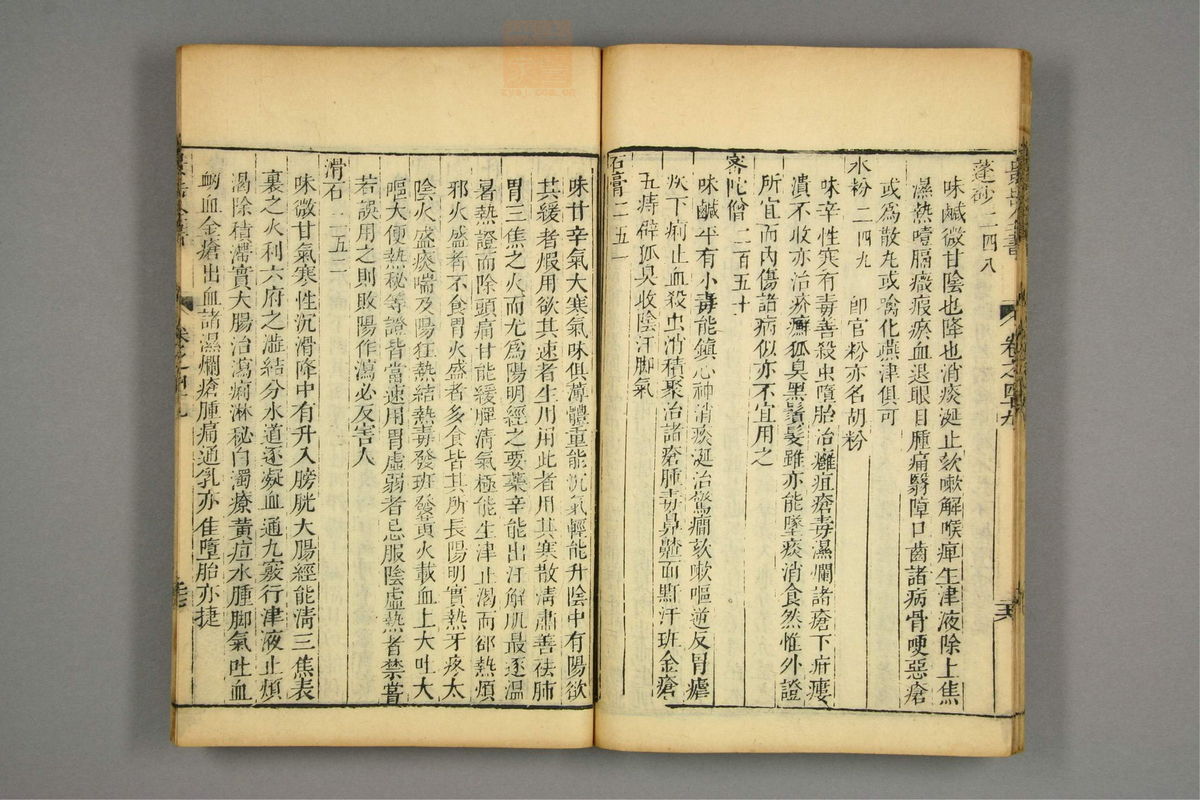 蓬砂二四八
味鹹微甘陰也降也消痰涎止欬嗽解喉痺生津液除上焦
濕熱噎膈癥瘕瘀血退眼目腫痛翳障口齒諸病骨哽惡瘡
或爲散丸或噙化嚥津俱可
水粉二四九 卽官粉亦名胡粉
味辛性寒有毒善殺虫墮胎治癰疽瘡毒濕爛諸瘡下疳瘻
潰不收亦治疥癬狐臭黑鬚髮雖亦能墜痰消食然惟外證
所宜而內傷諸病似亦不宜用之
密陀僧二百五十
味鹹平有小毒能鎮心神消痰涎治驚癇欬嗽嘔逆反胃瘧
疾下痢止血殺虫消積聚治諸瘡腫毒鼻齄面䵟汗班金瘡
五痔僻狐臭收陰汗脚氣
石膏二五一
味甘辛氣大寒氣味俱薄體重能沉氣輕能升陰中有陽欲
其緩者煆用欲其速者生用用此者用其寒散淸肅善祛肺
胃三焦之火而尤爲陽明經之要藥辛能出汗解肌最逐溫
暑熱證而除頭痛甘能緩脾淸氣極能生津止渴而郤熱煩
邪火盛者不食胃火盛者多食皆其所長陽明實熱牙疼太
陰火盛痰喘及陽狂熱結熱毒發班發黃火載血上大吐大
嘔大便熱秘等證皆當速用胃虛弱者忌服陰虛熱者禁嘗
若誤用之則敗陽作瀉必反害人
滑石二五二
味微甘氣寒性沉滑降中有升入膀胱大腸經能淸三焦表
裏之火利六府之澁結分水道逐凝血通九竅行津液止煩
渴除積滯實大腸治瀉痢淋秘白濁療黃疸水腫脚氣吐血
衂血金瘡出血諸濕爛瘡腫痛通乳亦佳墮胎亦捷
卷之四十九